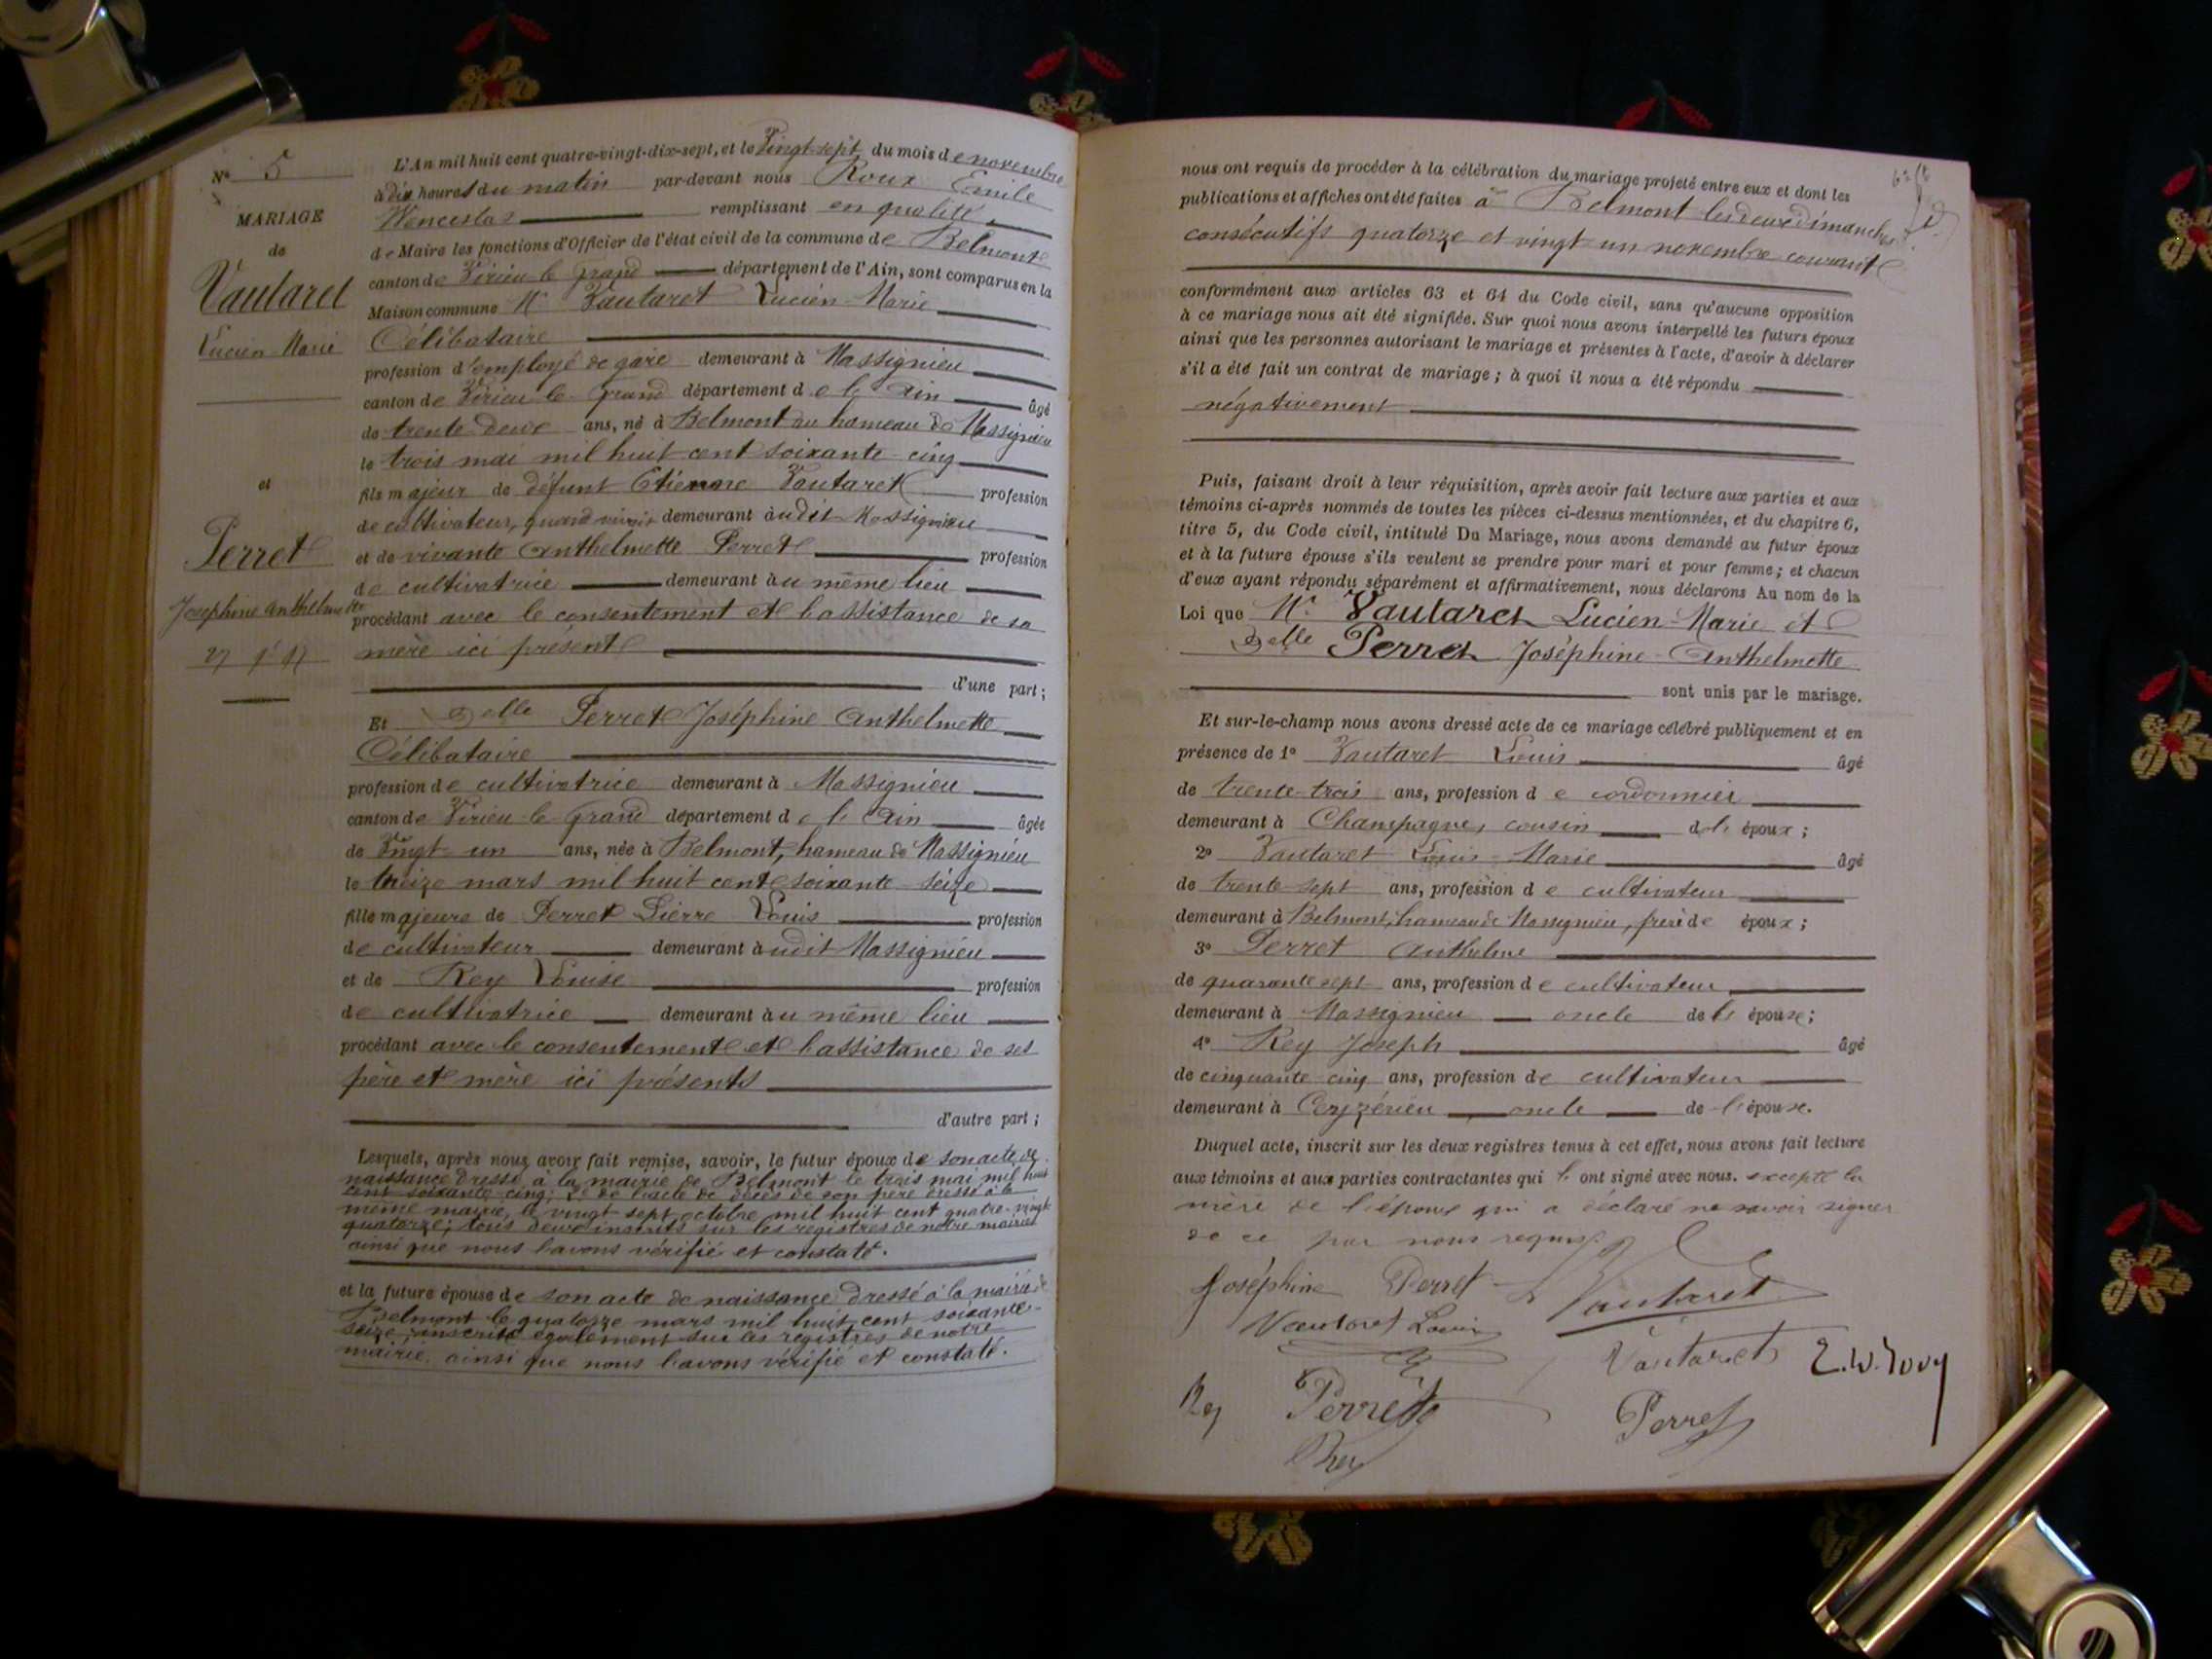 N° 5
MARIAGE
de
Vautaret
Lucien Marie
et
Perret
Joséphine Anthelmette
L'An mil huit cent quatre-vingt-dix-sept, et le Vingt-sept du mois de novembre
à dix heures du matin par-devant nous Roux Emile
Wenceslas remplissant en qualité
de Maire les fonctions d'Officier de l'état civil de la commune de Belmont
canton de Virieu le Grand département de l'Ain, sont comparus en la
Maison commune Mr Vautaret Lucien Marie
Célibataire
profession d'employé de gare demeurant à Massignieu
canton de Virieu le Grand département de l'Ain âgé
de trente deux ans, né à Belmont au hameau de Massignieu
le trois mai mil huit cent soixante-cinq
fils majeur de défunt Etienne Vautaret profession
de cultivateur, quand vivait demeurant audit Massignieu
et de vivante Anthelmette Perret profession
de cultivatrice demeurant au même lieu
procédant avec le consentement et l'assistance de sa
mère ici présente
d'une part;
Et Delle Perret Joséphine Anthelmette
Célibataire
profession de cultivatrice demeurant à Massignieu
canton de Virieu le Grand département de l'Ain âgée
de Vingt-un ans, née à Belmont, hameau de Massignieu
le treize mars mil huit cent soixante-seize
fille majeure de Perret Pierre Louis profession
de cultivateur demeurant audit Massignieu
et de Rey Louise profession
de cultivatrice demeurant au même lieu
procédant avec le consentement et l'assistance de ses
père et mère ici présents
d'autre part;
Lesquels, après nous avoir fait remise, savoir, le futur époux de son acte de
naissance dressé à la mairie de Belmont le trois mai mil huit
cent soixante cinq; 2e de l'acte de décès de son père dressé à la
même mairie, le vingt sept octobre mil huit cent quatre-vingt
quatorze; tous deux inscrits sur les registres de notre mairie
ainsi que nous l'avons vérifié et constaté.
et la future épouse de son acte de naissance dressé à la mairie de
Belmont le quatorze mars mil huit cent soixante-
seize, inscrit également sur les registres de notre
mairie, ainsi que nous l'avons vérifié et constaté.
nous ont requis de procéder à la célébration du mariage projeté entre eux et dont les
publications et affiches ont été faites à Belmont les deux dimanches
consécutifs quatorze et vingt-un novembre courant
conformément aux articles 63 et 64 du Code civil, sans qu'aucune opposition
à ce mariage nous ait été signifiée. Sur quoi nous avons interpellé les futurs époux
ainsi que les personnes autorisant le mariage et présentes à l'acte, d'avoir à déclarer
s'il a été fait un contrat de mariage; à quoi il nous a été répondu
négativement
Puis, faisant droit à leur réquisition, après avoir fait lecture aux parties et aux
témoins ci-après nommés de toutes les pièces ci-dessus mentionnées, et du chapitre 6,
titre 5, du Code civil, intitulé Du Mariage, nous avons demandé au futur époux
et à la future épouse s'ils veulent se prendre pour mari et pour femme; et chacun
d'eux ayant répondu séparément et affirmativement, nous déclarons Au nom de la
Loi que Mr Vautaret Lucien-Marie et
Delle Perret Joséphine-Anthelmette
sont unis par le mariage.
Et sur-le-champ nous avons dressé acte de ce mariage célébré publiquement et en
présence de 1° Vautaret Louis âgé
de trente-trois ans, profession de cordonnier
demeurant à Champagne, cousin de l'époux;
2° Vautaret Louis-Marie âgé
de trente-sept ans, profession de cultivateur
demeurant à Belmont, hameau de Massignieu, frère de époux;
3° Perret Anthelme
de quarante sept ans, profession de cultivateur
demeurant à Massignieu oncle de l'épouse;
4° Rey Joseph âgé
de cinquante-cinq ans, profession de cultivateur
demeurant à Ceyzérieu oncle de l'épouse.
Duquel acte, inscrit sur les deux registres tenus à cet effet, nous avons fait lecture
aux témoins et aux parties contractantes qui l'ont signé avec nous. excepté la
mère de l'époux qui a déclaré ne savoir signer
de ce par nous requis.
Joséphine Perret Vautaret
Vautaret Louis
Vautaret
Rey Perret Perret
Rey